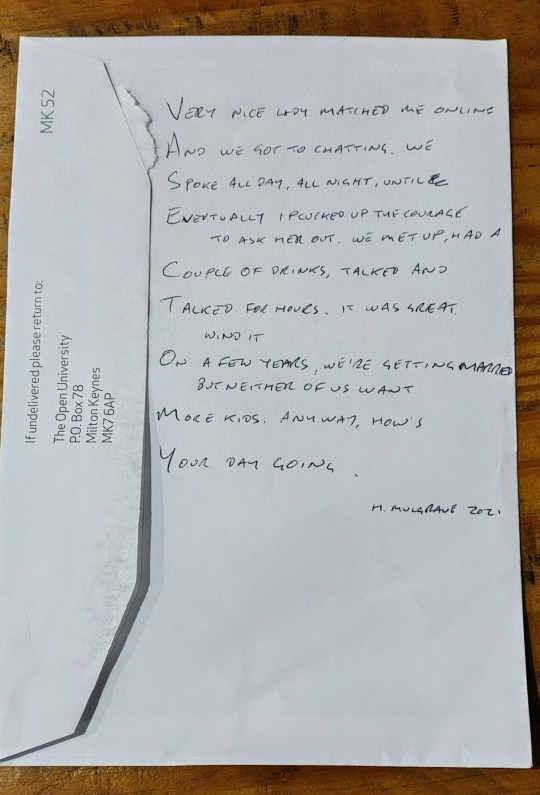 MK 52
If undelivered please return to:
The Open University
P.O. Box 78
Milton Keynes
MK7 6AP
VERY NICE LADY MATCHED ME ONLINE
AND WE GOT TO CHATTING. WE
SPOKE ALL DAY, ALL NIGHT, UNTIL
EVENTUALLY I PLUCKED UP THE COURAGE
TO ASK HER OUT. WE MET UP, HAD A
COUPLE OF DRINKS, TALKED AND
TALKED FOR HOURS. IT WAS GREAT.
WIND IT
ON A FEW YEARS, WE'RE GETTING MARRIED
BUT NEITHER OF US WANT
MORE KIDS. ANYWAY, HOW'S
YOUR DAY GOING.
M. MULGRAVE 2021